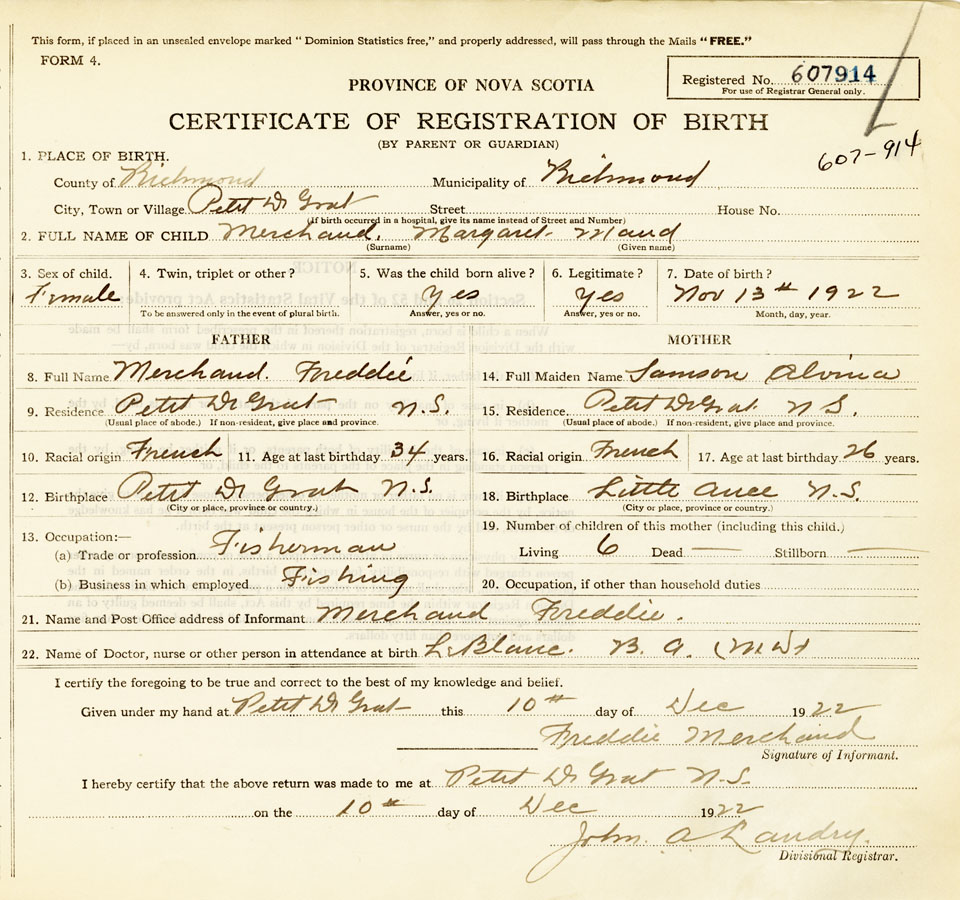 This form, if placed in an unsealed envelope marked "Dominion Statistics free," and properly addressed, will pass through the Mails "FREE."
FORM 4.
Registered No. 607914
For use of Registrar General only.
PROVINCE OF NOVA SCOTIA
CERTIFICATE OF REGISTRATION OF BIRTH
(BY PARENT OR GUARDIAN)
607-914
1. PLACE OF BIRTH.
County of Richmond Municipality of Richmond
City, Town or Village Petit De Grat Street House No.
(If birth occurred in a hospital, give its name instead of Street and Number)
2. FULL NAME OF CHILD Merchand, Margaret Maud
(Surname) (Given name)
3. Sex of child. 4. Twin, triplet or other? 5. Was the child born alive? 6. Legitimate? 7. Date of birth?
Female Yes Yes Nov 13th 1922
To be answered only in the event of plural birth. Answer, yes or no. Answer, yes or no. Month, day, year.
FATHER MOTHER
8. Full Name Merchand. Freddie 14. Full Maiden Name Samson Alvina
9. Residence Petit De Grat N.S. 15. Residence. Petit De Grat N S.
(Usual place of abode.) If non-resident, give place and province. (Usual place of abode.) If non-resident, give place and province.
10. Racial origin French 11. Age at last birthday 34 years. 16. Racial origin French 17. Age at last birthday 26 years.
12. Birthplace Petit De Grat N.S. 18. Birthplace Little Ance N.S.
(City or place, province or country.) (City or place, province or country.)
13. Occupation:— 19. Number of children of this mother (including this child.)
(a) Trade or profession Fisherman Living 6 Dead — Stillborn —
(b) Business in which employed Fishing 20. Occupation, if other than household duties
21. Name and Post Office address of Informant Merchand Freddie.
22. Name of Doctor, nurse or other person in attendance at birth LeBlanc. B. A.
I certify the foregoing to be true and correct to the best of my knowledge and belief.
Given under my hand at Petit De Grat this 10th day of Dec 1922
Freddie Merchand
Signature of Informant.
I hereby certify that the above return was made to me at Petit De Grat N.S.
on the 10th day of Dec 1922
John. A Landry.
Divisional Registrar.